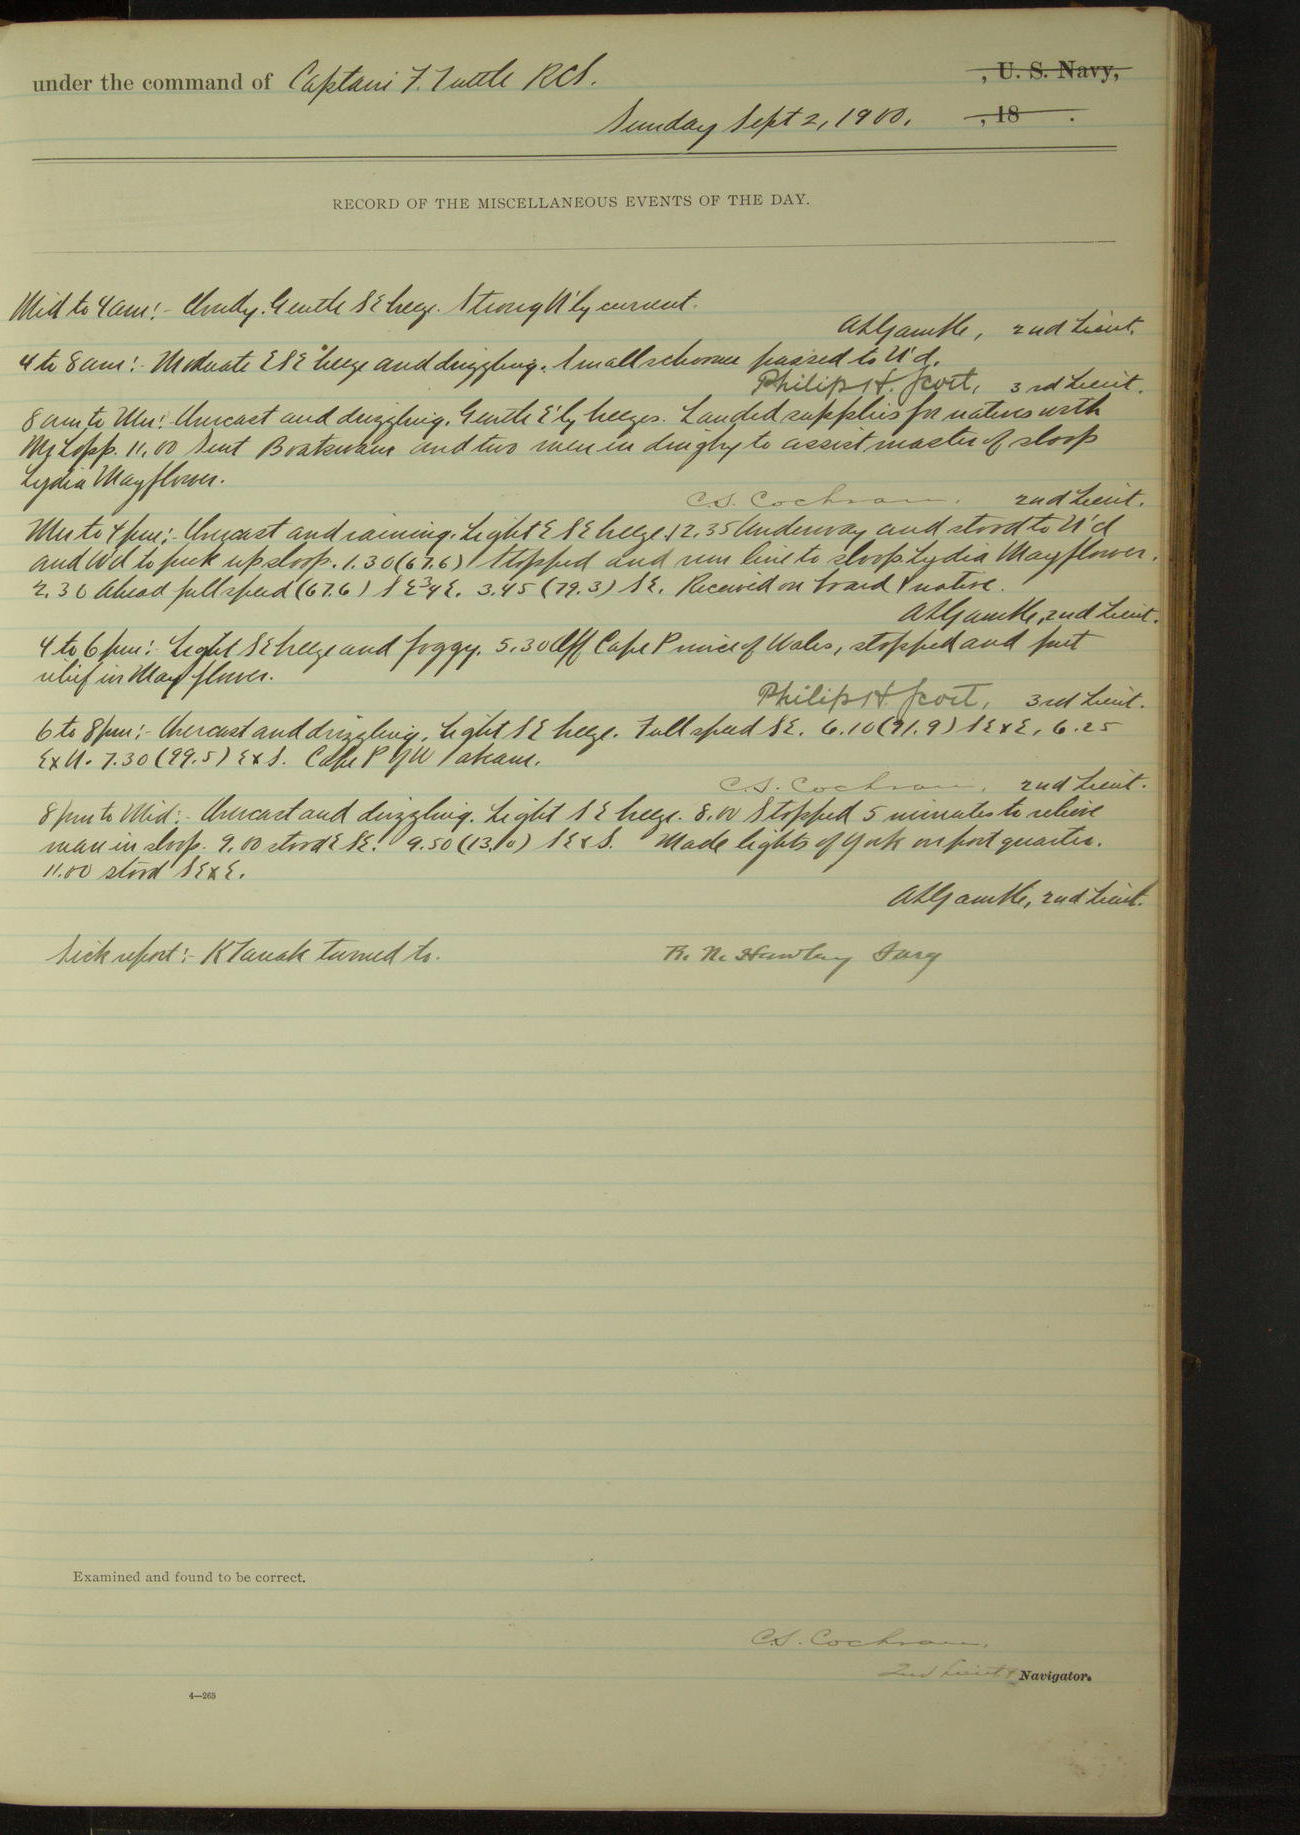 under the command of Captain F. Tuttle R.C.S. , U. S. Navy,
Sunday Sept 2, 1900. , 18 .
RECORD OF THE MISCELLANEOUS EVENTS OF THE DAY.
Mid to 4 am:- Cloudy. Gentle SE breeze. Strong N'ly current.
A L Gamble, 2nd Lieut.
4 to 8 am:- Moderate ESE breeze and drizzling. Small schooner passed to N'd.
Philip H. Scott, 3rd Lieut.
8 am to Mer:- Overcast and drizzling. Gentle E'ly breezes. Landed supplies for natives with
Mr Lopp. 11.00 Sent Boatswain and two men in dinghy to assist master of sloop
Lydia Mayflower.
C.S. Cochran. 2nd Lieut.
Mer to 4 pm:- Overcast and raining. Light ESE breeze. 12.35 Underway and stood to N'd
and W'd to pick up sloop. 1.30 (67.6) Stopped and run line to sloop Lydia Mayflower.
2.30 Ahead full speed (67.6) SE 3/4 E. 3.45 (79.3) SE. Received on board 1 native.
A L Gamble, 2nd Lieut.
4 to 6 pm:- Light SE breeze and foggy. 5.30 Off Cape Prince of Wales, stopped and put
relief in Mayflower.
Philip H. Scott, 3rd Lieut.
6 to 8 pm:- Overcast and drizzling. Light SE breeze. Full speed SE. 6.10 (91.9) SExE, 6.25
ExN. 7.30 (99.5) ExS. Cape P of W abeam.
C.S. Cochran, 2nd Lieut.
8 pm to Mid:- Overcast and drizzling. Light SE breeze. 8.00 Stopped 5 minutes to relieve
man in sloop. 9.00 stood ESE. 9.50 (13.0) SExS. Made lights of York on port quarter.
11.00 stood SExE.
A L Gamble, 2nd Lieut.
Sick report:- K Tanak turned to. R. N. Hawley Surg
Examined and found to be correct.
C.S. Cochran,
2nd Lieut & Navigator.
4—263